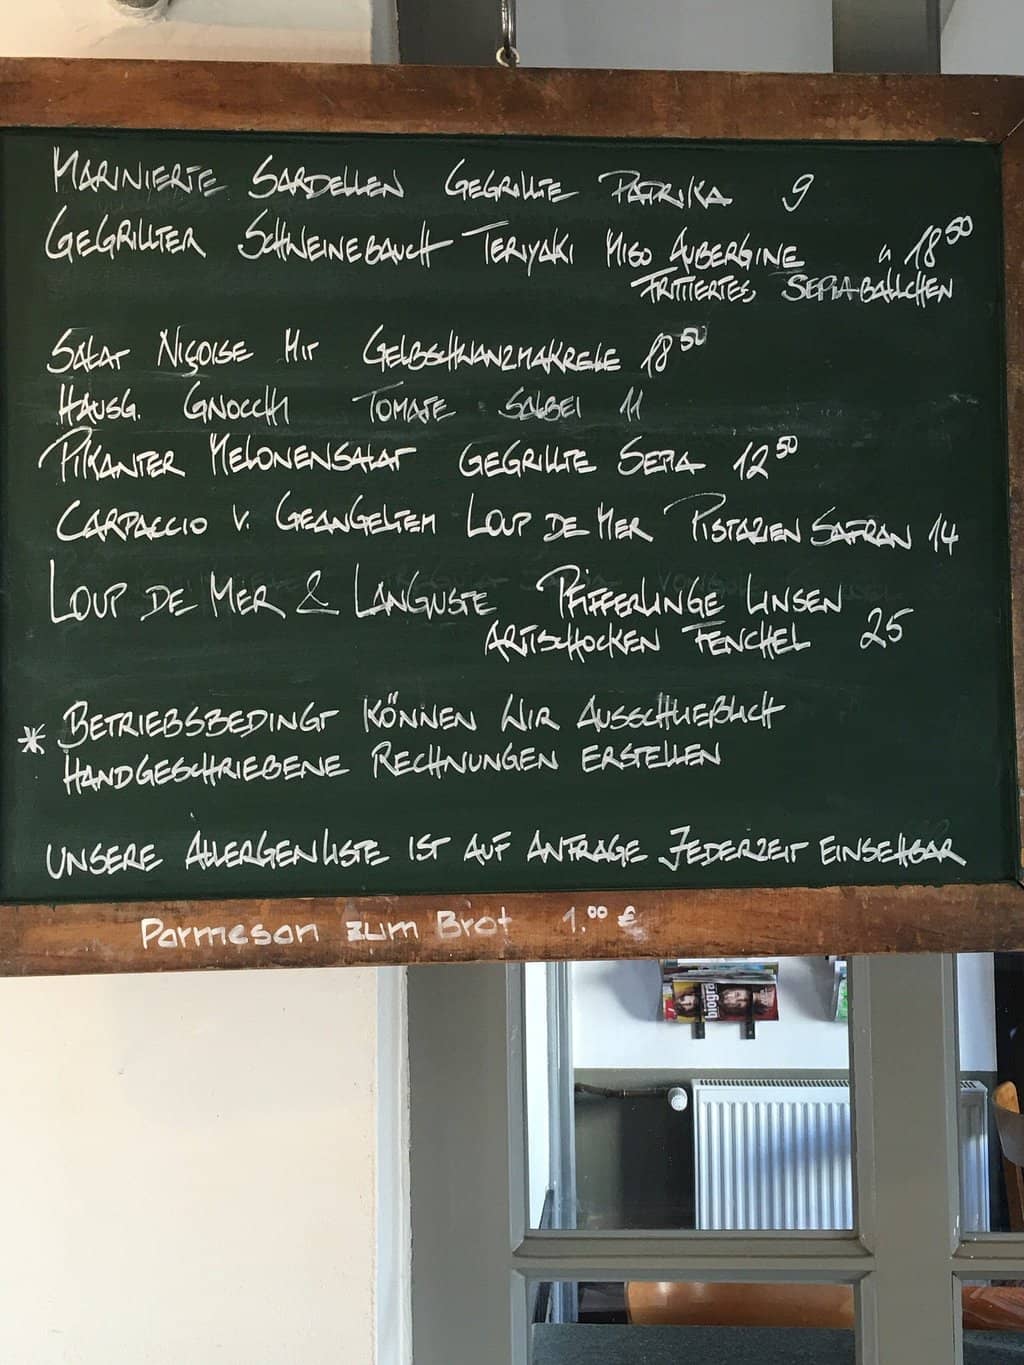 MARINIERTE SARDELLEN GEGRILLTE PAPRIKA 9
GEGRILLTER SCHWEINEBAUCH TERIYAKI MISO AUBERGINE " 18 50
FRITTIERTES SEPIABÄLLCHEN
SALAT NIÇOISE MIT GELBSCHWANZMAKRELE 18 50
HAUSG. GNOCCHI TOMATE SALBEI 11
PIKANTER MELONENSALAT GEGRILLTE SEPIA 12 50
CARPACCIO V. GEANGELTEM LOUP DE MER PISTAZIEN SAFRAN 14
LOUP DE MER & LANGUSTE PFIFFERLINGE LINSEN
ARTISCHOCKEN FENCHEL 25
* BETRIEBSBEDINGT KÖNNEN WIR AUSSCHLIEßLICH
HANDGESCHRIEBENE RECHNUNGEN ERSTELLEN
UNSERE ALLERGENLISTE IST AUF ANFRAGE JEDERZEIT EINSEHBAR
Parmesan zum Brot 1.00 €
biogra